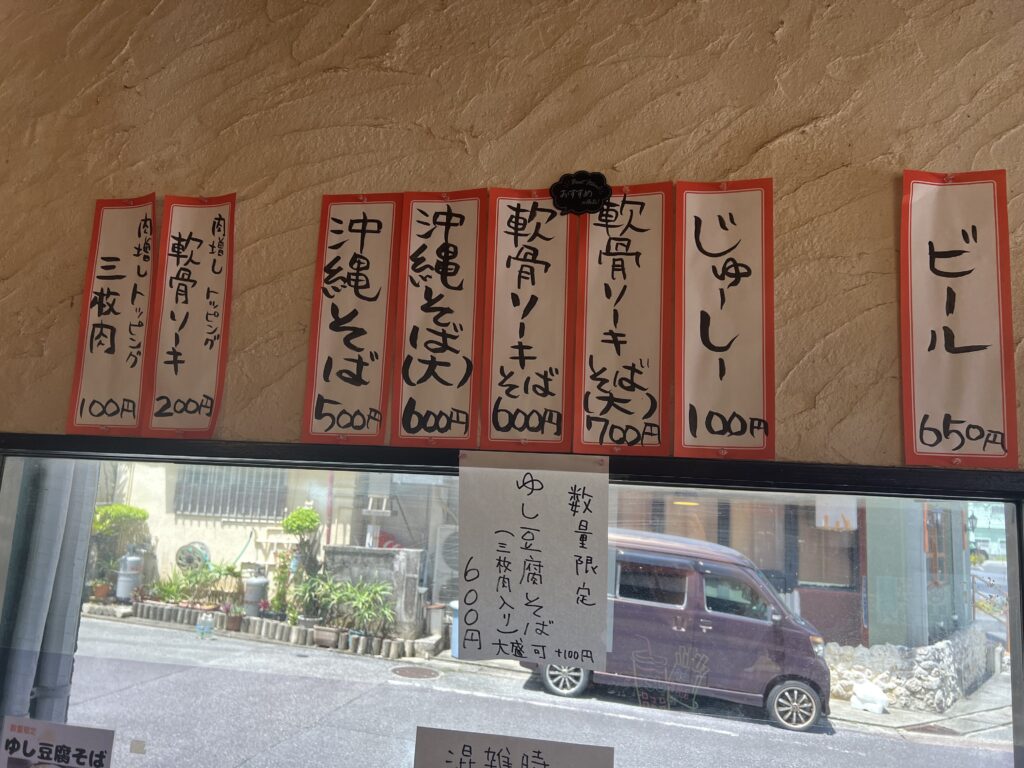 ビール
650円
じゅーしー
100円
おすすめ
軟骨ソーキ
そば(大)
700円
軟骨ソーキ
そば
600円
沖縄そば(大)
600円
沖縄そば
500円
肉増しトッピング
軟骨ソーキ
200円
肉増しトッピング
三枚肉
100円
数量限定
ゆし豆腐そば
(三枚肉入り)
600円
大盛可 +100円
数量限定
ゆし豆腐そば
混雑時